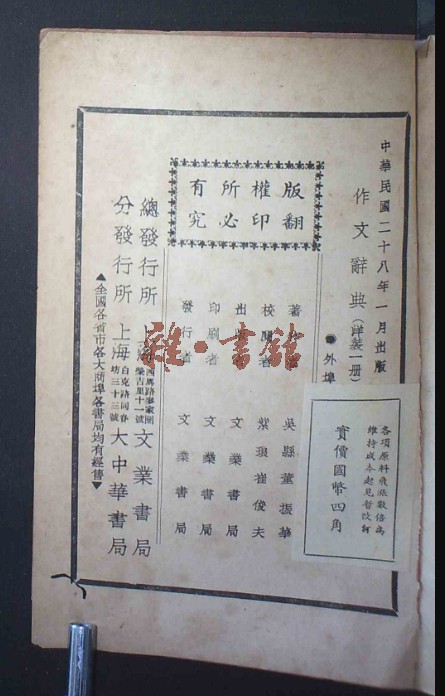 中華民國二十八年一月出版
作文辭典（洋裝一册）
●外埠
各項原料飛漲數倍為
維持成本起見暫改訂
實價國幣四角
版權所有
翻印必究
著者 吳縣董振華
校閱者 崔俊夫
出版者 文業書局
印刷者 文業書局
發行者 文業書局
總發行所 上海 文業書局
分發行所 上海白克路同春坊三十三號 大中華書局
▲全國各省市各大商埠各書局均有經售▼
雜·書館